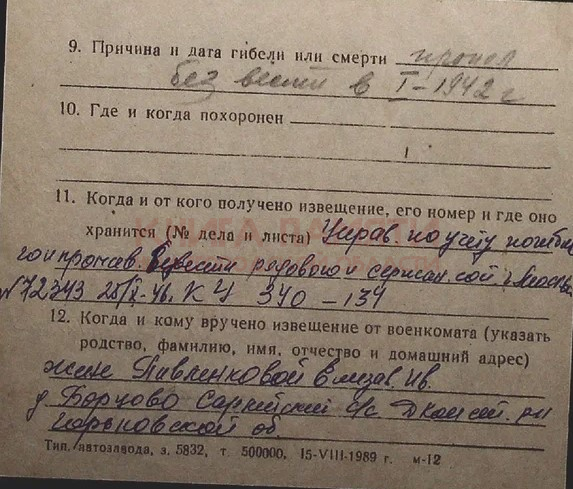 9. Причина и дата гибели или смерти пропал
без вести в I-1942 г
10. Где и когда похоронен
11. Когда и от кого получено извещение, его номер и где оно
хранится (№ дела и листа) Управ. по учету погибш
го и пропав. безвести рядового и сержан. сой. г Москва
№ 72343 25/X-46. КУ 340-134
12. Когда и кому вручено извещение от военкомата (указать
родство, фамилию, имя, отчество и домашний адрес)
жене Павленковой Елизав. Ив.
д Борцово с/с рн
Горьковской об.
Тип. автозавода, з. 5832, т. 500000, 15-VIII-1989 г. м-12